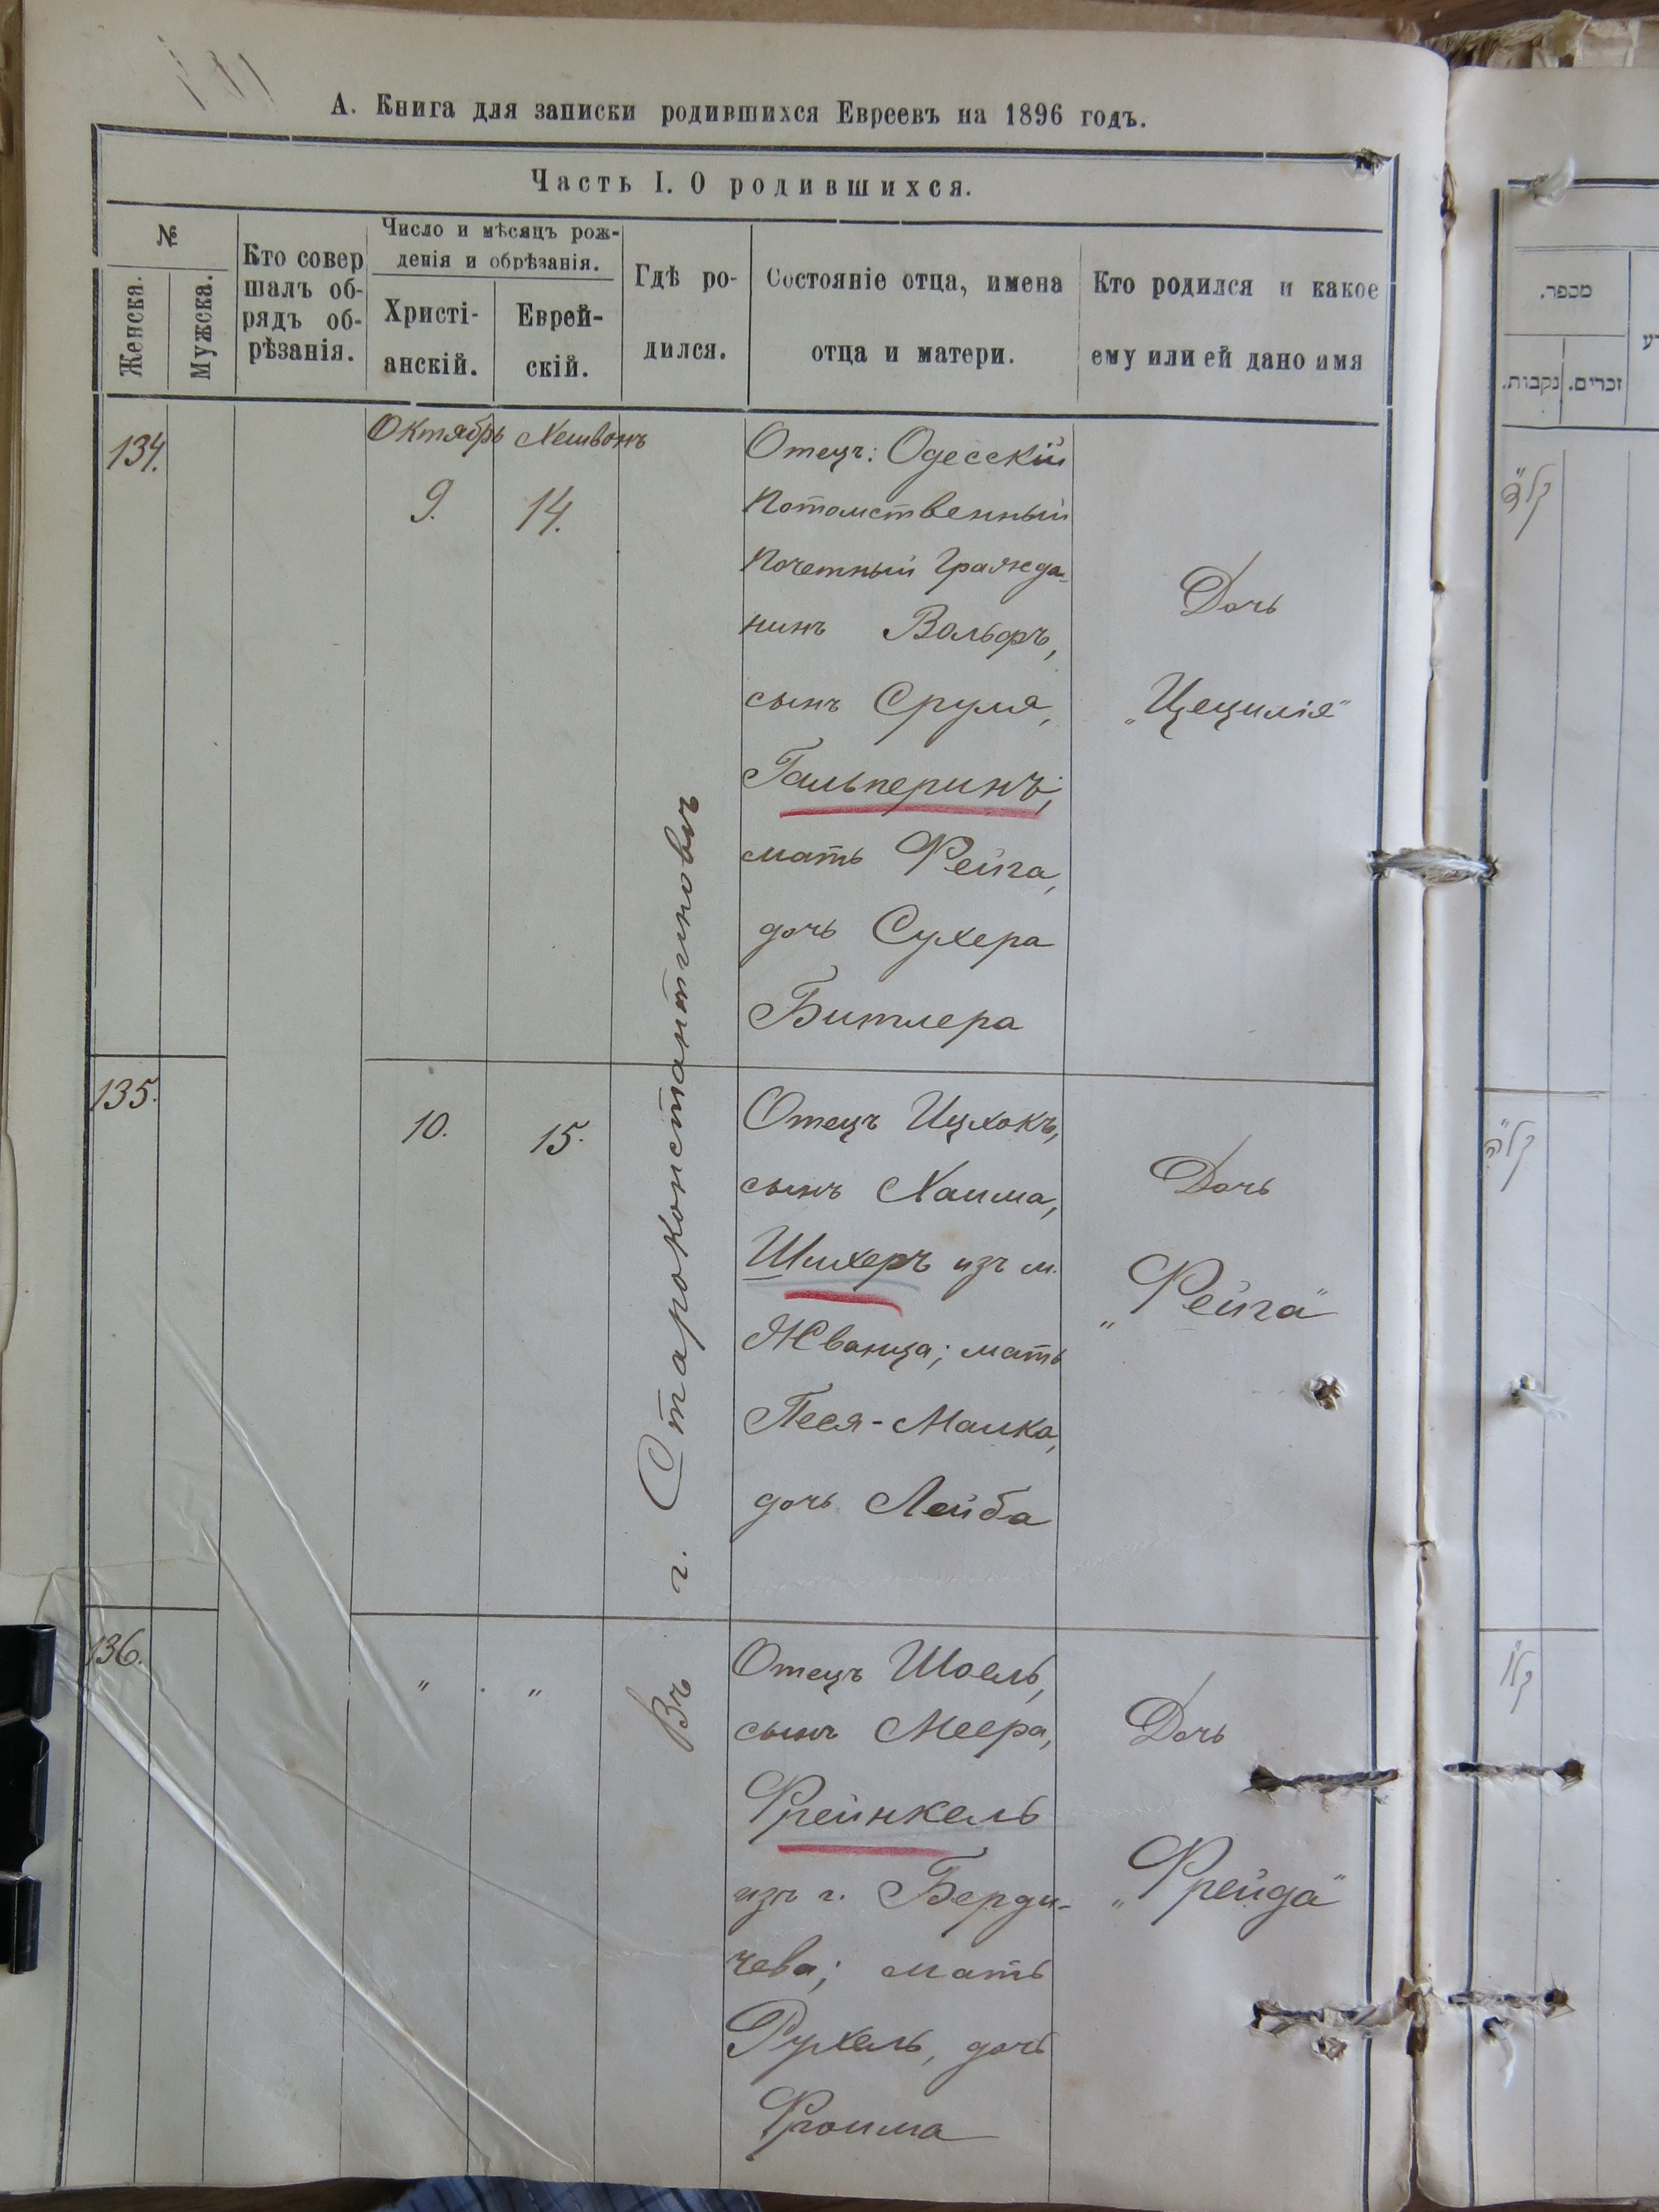 А. Книга для записки родившихся Евреевъ на 1896 годъ.
Часть I. О родившихся.
№
Женска.
Мужска.
Кто совер
шалъ об-
рядъ об-
рѣзанія.
Число и мѣсяцъ рож-
денія и обрѣзанія.
Христі-
анскій.
Еврей-
скій.
Гдѣ ро-
дился.
Состояніе отца, имена
отца и матери.
Кто родился и какое
ему или ей дано имя
134.
Октябрь
9.
Хешвонъ
14.
Въ г. Староконстантиновѣ
Отецъ: Одесскій
Потомственный
Почетный Гражда-
нинъ Вольфъ,
сынъ Сруля,
Гальперинъ;
мать Фейга,
дочь Сухера
Битлера
Дочь
„Цецилія"
135.
10.
15.
Отецъ Ицхокъ,
сынъ Хаима,
Шихеръ изъ м.
Жванца; мать
Песя-Малка,
дочь Лейба
Дочь
„Фейга"
136.
" . "
Отецъ Шоель,
сынъ Меера,
Фрейнкель
изъ г. Берди-
чева; мать
Рухель, дочь
Фроима
Дочь
„Фрейда"
מספר.
נקבות.
זכרים.
קל"ד
קל"ה